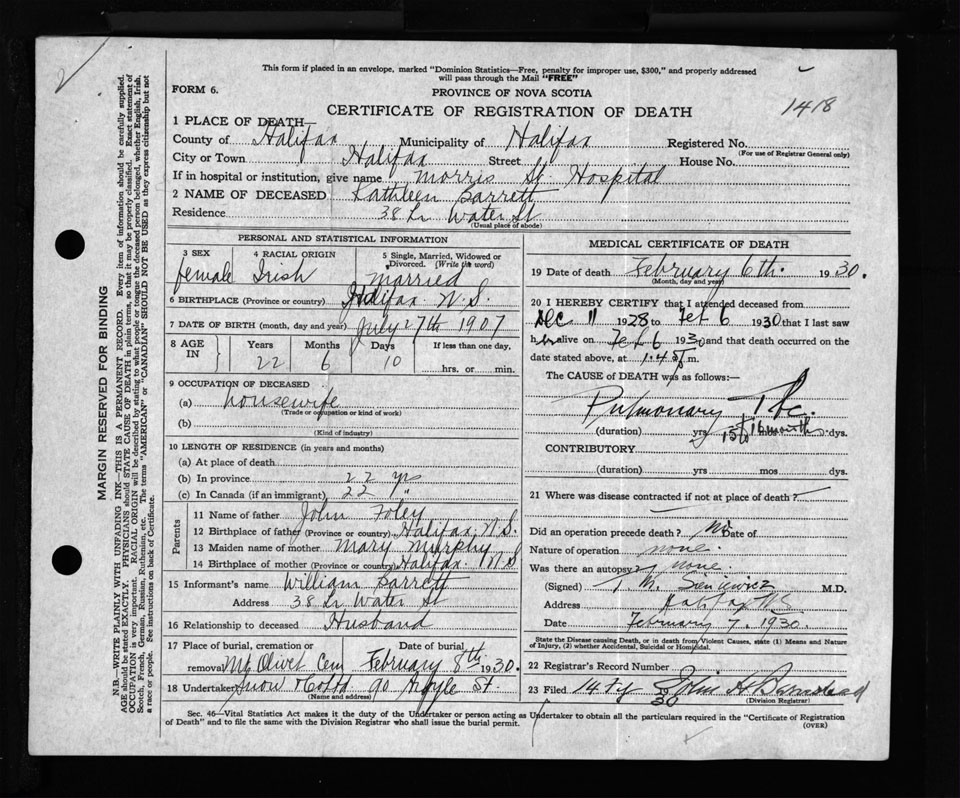 This form if placed in an envelope, marked "Dominion Statistics—Free, penalty for improper use, $300," and properly addressed
will pass through the Mail "FREE"
FORM 6.
PROVINCE OF NOVA SCOTIA
CERTIFICATE OF REGISTRATION OF DEATH
1418
1 PLACE OF DEATH—
County of Halifax Municipality of Halifax Registered No.
(For use of Registrar General only)
City or Town Halifax Street House No.
If in hospital or institution, give name Morris St. Hospital
2 NAME OF DECEASED Kathleen Barrett
Residence 38 Lr Water St
(Usual place of abode)
PERSONAL AND STATISTICAL INFORMATION
3 SEX 4 RACIAL ORIGIN 5 Single, Married, Widowed or Divorced. (Write the word)
female Irish Married
6 BIRTHPLACE (Province or country) Halifax N.S.
7 DATE OF BIRTH (month, day and year) July 27th 1907
8 AGE IN Years Months Days If less than one day,
22 6 10 hrs. or min.
9 OCCUPATION OF DECEASED
(a) housewife
(Trade or occupation or kind of work)
(b)
(Kind of industry)
10 LENGTH OF RESIDENCE (in years and months)
(a) At place of death
(b) In province 22 yrs
(c) In Canada (if an immigrant) 22 "
Parents
11 Name of father John Foley
12 Birthplace of father (Province or country) Halifax, N.S.
13 Maiden name of mother Mary Murphy
14 Birthplace of mother (Province or country) Halifax. N S
15 Informant's name William Barrett
Address 38 Lr Water St
16 Relationship to deceased Husband
17 Place of burial, cremation or Date of burial
removal Mt Olivet Cem February 8th 1930.
18 Undertaker Snow & Co Ltd 90 Argyle St.
(Name and address)
MEDICAL CERTIFICATE OF DEATH
19 Date of death February 6th. 1930.
(Month, day and year)
20 I HEREBY CERTIFY that I attended deceased from
Dec 11 1928 to Feb 6 1930 that I last saw
her alive on Feb 6 1930 and that death occurred on the
date stated above, at 1.45 m.
The CAUSE OF DEATH was as follows:
Pulmonary Tbc.
(duration) yrs 16 months dys.
CONTRIBUTORY
(duration) yrs mos dys.
21 Where was disease contracted if not at place of death?
Did an operation precede death? No Date of
Nature of operation none.
Was there an autopsy? none.
(Signed) T M. Sieniewicz M.D.
Address Halifax NS
Date February 7. 1930.
State the Disease causing Death, or in death from Violent Causes, state (1) Means and Nature
of Injury, (2) whether Accidental, Suicidal or Homicidal.
22 Registrar's Record Number
23 Filed 14 Fy 1930 John H
(Division Registrar)
Sec. 46—Vital Statistics Act makes it the duty of the Undertaker or person acting as Undertaker to obtain all the particulars required in the "Certificate of Registration
of Death" and to file the same with the Division Registrar who shall issue the burial permit.
(OVER)
MARGIN RESERVED FOR BINDING
N.B.—WRITE PLAINLY WITH UNFADING INK—THIS IS A PERMANENT RECORD. Every item of information should be carefully supplied.
AGE should be stated EXACTLY. PHYSICIANS should STATE CAUSE OF DEATH in plain terms, so that it may be properly classified. Exact statement of
OCCUPATION is very important. RACIAL ORIGIN will be described by stating to what people or tongue the deceased person belonged, whether English, Irish,
Scotch, French, German, Russian, Ruthenian, etc. The terms "AMERICAN" or "CANADIAN" SHOULD NOT BE USED as they express citizenship but not
a race or people. See instructions on back of Certificate.